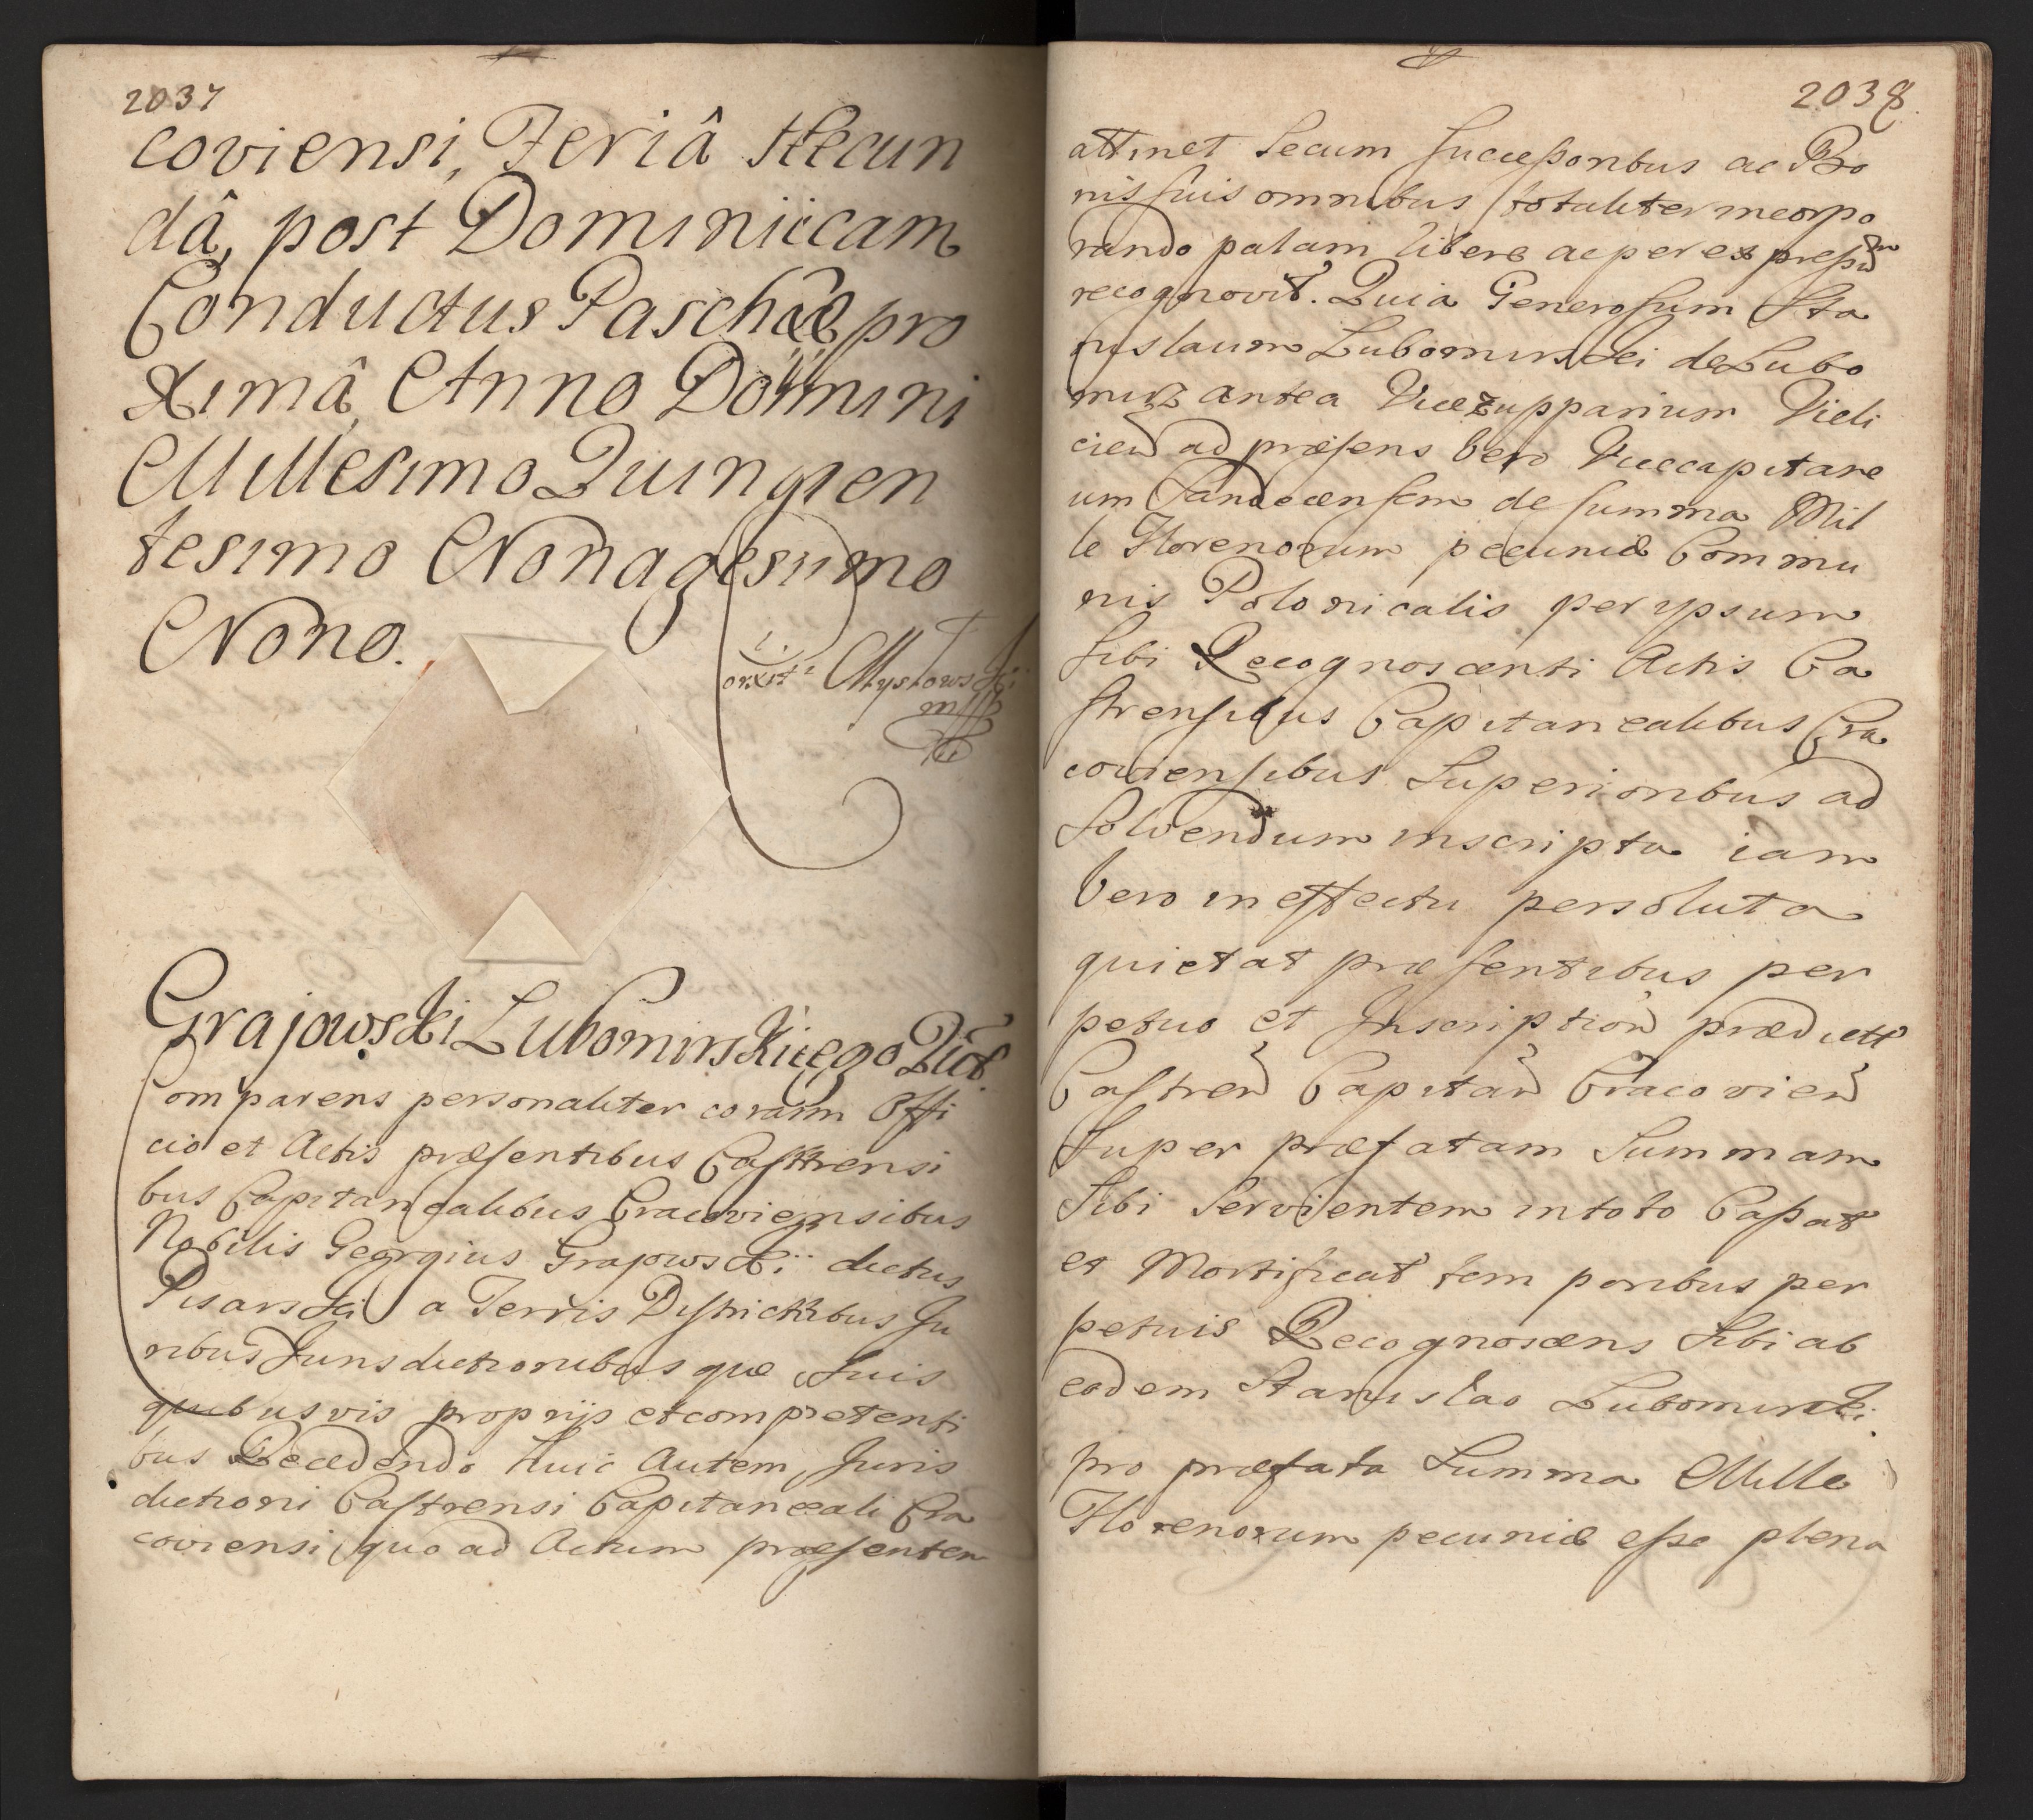 2037
coviensi, Feriâ Secun
dâ, post Dominicam
Conductus Paschæ pro
ximâ, Anno Domini
Millesimo Quingen
tesimo Nonagesimo
Nono.
Grajowski Lubomirskiego Quit
Comparens personaliter coram Offi
cio et Actis præsentibus Castrensi
bus Capitanealibus Cracoviensibus
Nobilis Georgius Grajowski dictus
Pisarski a Terris Districtibus Ju
ribus Jurisdictionibusque suis
quibusvis proprijs et competenti
bus Recedendo Huic Autem Juris
dictioni Castrensi Capitaneali Cra
coviensi quo ad Actum præsentem
2038
attinet Secum successoribus ac Bo
nis suis omnibus totaliter incorpo
rando palam libere ac per expressum
recognovit. Quia Generosum Sta
nislaum Lubomirski de Lubo
mirz antea Vicezupparium Vieli
cien ad præsens vero Vicecapitane
um Sandecensem de summa Mil
le Florenorum pecuniæ Commu
nis Polonicalis per ipsum
sibi Recognoscenti Actis Ca
strensibus Capitanealibus Cra
coviensibus Superioribus ad
Solvendum inscripta iam
vero in effectu persoluta
quietat præsentibus per
petuo et Inscription prædict
Castren Capitan Cracovien
Super præfatam Summam
Sibi Servientem in toto Cassat
et Mortificat temporibus per
petuis Recognoscens Sibi ab
eodem Stanislao Lubomirski
pro præfata Summa Mille
Florenorum pecuniæ esse plena